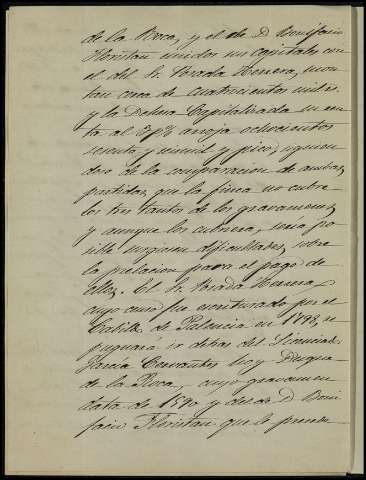 de la Roca, y el de D Bonifacio
Floristan unidos sus capitales con
el del Sr. Parada Herrera, mon
tan cerca de cuatrocientos mil rs
y la Dehesa Capitalizada su ren
ta al 3 p% arroja ochocientos
sesenta y seis mil y pico, siguien
dose de la comparacion de ambas
partidas, que la finca no cubre
los tres tantos de los gravamenes
y aunque los cubriera, seria po
sible surgiesen dificultades sobre
la prelacion para el pago de
ellos. El Sr. Parada Herrera,
cuyo censo fue escriturado por el
Cabildo de Palencia en 1798, re
pugnará ir detras del Licenciado
Garcia Cervantes hoy Duque
de la Roca, cuyo gravamen
data de 1590 y del de D. Boni
facio Floristan que lo presta